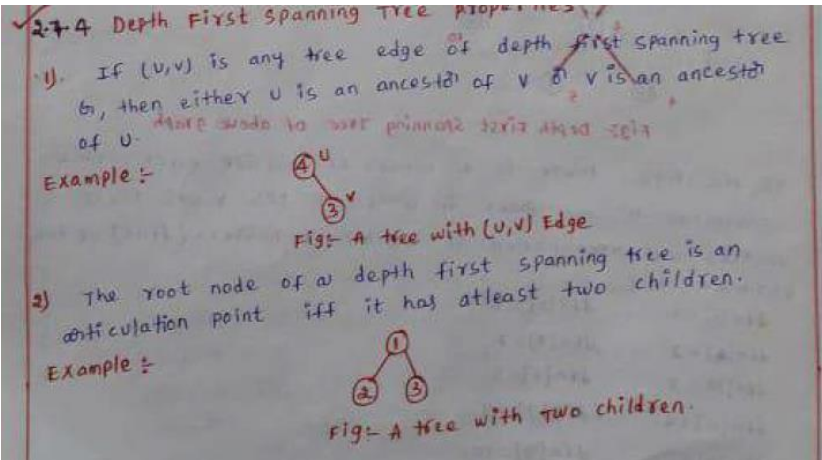 2.7.4 Depth First Spanning Tree properties
1). If (u,v) is any tree edge of depth first spanning tree
G, then either u is an ancestor of v or v is an ancestor
of u.
Example :-
4 u
3 v
Fig:- A tree with (u,v) Edge
2) The root node of a depth first spanning tree is an
articulation point iff it has atleast two children.
Example :-
1
2 3
Fig:- A tree with Two children.